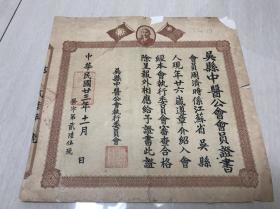 吳縣中醫公會會員證書
會員周濟時係江蘇省吳縣
人現年廿六歲遵章介紹入會
經本會執行委員會審查合格
除呈報外相應給予證書此證
吳縣中醫公會執行委員會
中華民國廿三年十一月 日
醫字第貳陸伍號